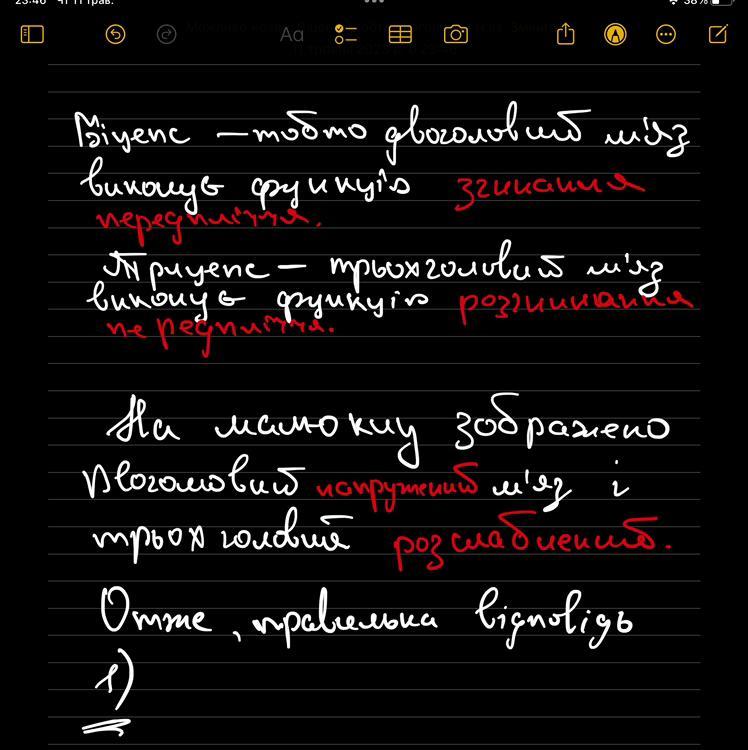 23:46 Чт 11 трав. 38%
Aa
Біцепс – тобто двоголовий м'яз
виконує функцію згинання
передпліччя.
Трицепс – трьохголовий м'яз
виконує функцію розгинання
передпліччя.
На малюнку зображено
Двоголовий напружений м'яз і
трьохголовий розслаблений.
Отже, правильна відповідь
1)